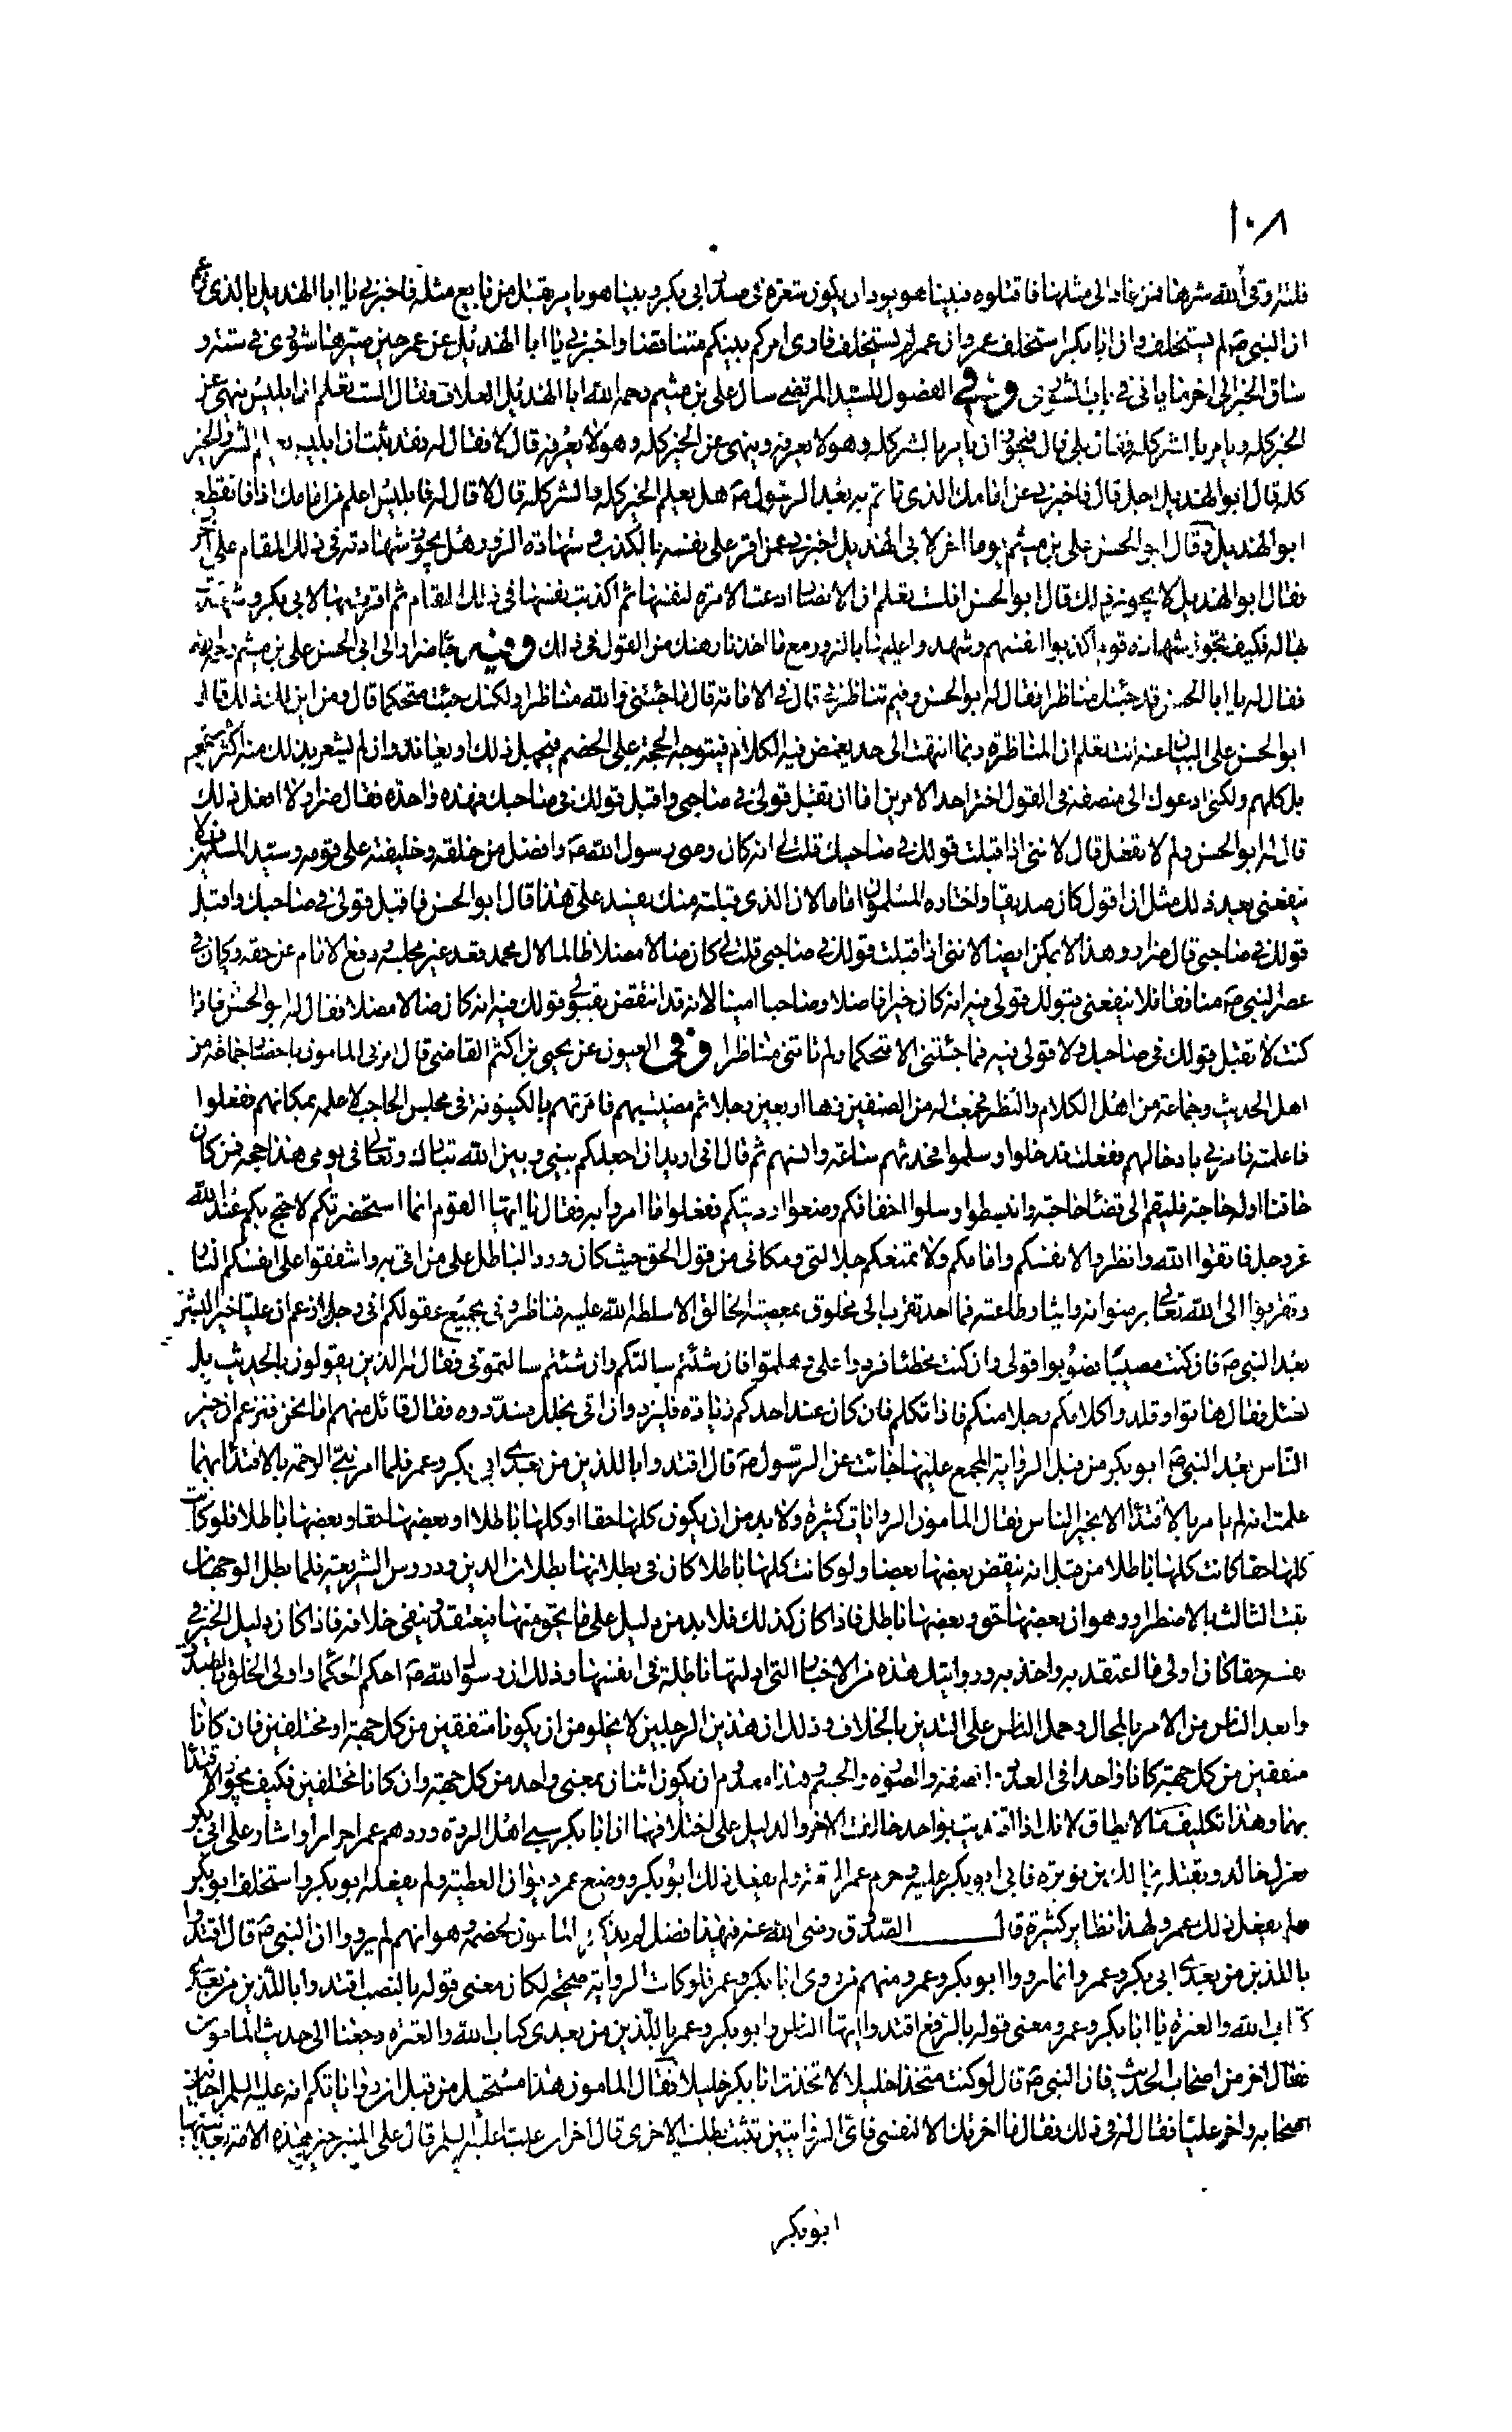 ١٠٨
فلتة وقى الله شرها فمن عاد الى مثلها فاقتلوه فبينا هو يود ان يكون شعرة فى صدر ابى بكر وبينا هو يامر بقتل من بايع مثله فاخبرنى يا ابا الهذيل بالذى زعم
ان النبى ص لم يستخلف وان ابا بكر استخلف عمر وان عمر لم يستخلف فارى امركم بينكم متناقضا واخبرنى يا ابا الهذيل عن عمر حين صيرها شورى فى ستة و
ساق الخبر الى اخر ما ياتى فى باب الشورى وفى الفصول للسيد المرتضى سال على بن ميثم رحمه الله ابا الهذيل العلاف فقال الست تعلم ان ابليس ينهى عن
الخير كله ويامر بالشر كله فقال بلى قال فيجوز ان يامر بالشر كله وهو لا يعرفه وينهى عن الخير كله وهو لا يعرفه قال لا فقال له فقد ثبت ان ابليس يعلم الشر والخير
كله قال ابو الهذيل اجل قال فاخبرنى عن امامك الذى تاتم به بعد الرسول ص هل يعلم الخير كله والشر كله قال لا قال له فابليس اعلم من امامك اذا فانقطع
ابو الهذيل وقال ابو الحسن على بن ميثم يوما اخر لابى الهذيل اخبرنى عمن اقر على نفسه بالكذب وشهادة الزور هل يجوز شهادته فى ذلك المقام على آخر
فقال ابو الهذيل لا يجوز ذلك قال ابو الحسن افلست تعلم ان الانصار ادعت الامرة لنفسها ثم اكذبت نفسها فى ذلك المقام ثم اقرت بها لابى بكر وشهدت
بها له فكيف تجوز شهادة قوم اكذبوا انفسهم وشهدوا عليها بالزور مع ما اخذنا رهنك من القول فى ذلك وفيه جاء ضرار الى ابى الحسن على بن ميثم رحمه الله
فقال له يا ابا الحسن قد جئتك مناظرا فقال له ابو الحسن وفيم تناظرنى قال فى الامامة قال ما جئتنى والله مناظرا ولكنك جئت متحكما قال ومن اين لك ذلك قال
ابو الحسن على البيان عنه انت تعلم ان المناظرة ربما انتهت الى حد يغمض فيه الكلام فيتوجه الحجة على الخصم فيجهل ذلك او يعاند وان لم يشعر بذلك منه اكثر مستمعيه
بل كلهم ولكنى ادعوك الى منصفة فى القول اختر احد الامرين اما ان تقبل قولى فى صاحبى واقبل قولك فى صاحبك فهذه واحدة فقال ضرار لا افعل ذلك
قال له ابو الحسن ولم لا تفعل قال لاننى اذا قبلت قولك فى صاحبك قلت لى انه كان وصى رسول الله ص وافضل من خلفه وخليفته على قومه وسيد المسلمين فلا
ينفعنى بعد ذلك مثل ان اقول كان صديقا واختاره المسلمون اماما لان الذى قبلته منك يفسد على هذا قال ابو الحسن فاقبل قولى فى صاحبك واقبل
قولك فى صاحبى قال ضرار وهذا لا يمكن ايضا لاننى اذا قبلت قولك فى صاحبى قلت لى كان ضالا مضلا ظالما لال محمد قعد غير مجلسه ودفع الامام عن حقه وكان فى
عصر النبى ص منافقا فلا ينفعنى قبولك قولى فيه انه كان خيرا فاضلا وصاحبا امينا لانه قد انتقض بقبولى قولك فيه انه كان ضالا مضلا فقال له ابو الحسن فاذا
كنت لا تقبل قولك فى صاحبك ولا قولى فيه فما جئتنى الا متحكما ولم تاتنى مناظرا وفى العيون عن يحيى بن اكثم القاضى قال امرنى المامون باحضار جماعة من
اهل الحديث وجماعة من اهل الكلام والنظر فجمعت له من الصنفين زهاء اربعين رجلا ثم مضيت بهم فامرتهم بالكينونة فى مجلس الحاجب لاعلمه بمكانهم ففعلوا
فاعلمته فامرنى بادخالهم ففعلت فدخلوا وسلموا فحدثهم ساعة وانسهم ثم قال انى اريد ان اجعلكم بينى وبين الله تبارك وتعالى فى يومى هذا حجة فمن كان
حاقنا او له حاجة فليقم الى قضاء حاجته وانبسطوا وسلوا اخفافكم وضعوا ارديتكم ففعلوا ما امروا به فقال يا ايها القوم انما استحضرتكم لاحتج بكم عند الله
عز وجل فاتقوا الله وانظروا لانفسكم وامامكم ولا يمنعكم جلالتى ومكانى من قول الحق حيث كان ورد الباطل على من اتى به واشفقوا على انفسكم النار
وتقربوا الى الله تعالى برضوانه وايثار طاعته فما احد تقرب الى مخلوق بمعصية الخالق الا سلطه الله عليه فناظرونى بجميع عقولكم انى رجل ازعم ان عليا خير البشر
بعد النبى ص فان كنت مصيبا فصوبوا قولى وان كنت مخطئا فردوا على وهلموا فان شئتم سالتكم وان شئتم سالتمونى فقال له الذين يقولون بالحديث بل
نسئل فقال هاتوا وقلدوا كلامكم رجلا منكم فاذا تكلم فان كان عند احدكم زيادة فليزد وان اتى بخلل فسددوه فقال قائل منهم اما نحن فنزعم ان خير
الناس بعد النبى ص ابو بكر من قبل الرواية المجمع عليها جائت عن الرسول ص قال اقتدوا باللذين من بعدى ابى بكر وعمر فلما امر نبى الرحمة بالاقتداء بهما
علمنا انه لم يامر بالاقتداء الا بخير الناس فقال المامون الروايات كثيرة ولا بد من ان يكون كلها حقا او كلها باطلا او بعضها حقا وبعضها باطلا فلو كانت
كلها حقا كانت كلها باطلا من قبل انه ينقض بعضها بعضا ولو كانت كلها باطلا كان فى بطلانها بطلان الدين ودروس الشريعة فلما بطل الوجهان
ثبت الثالث بالاضطرار وهو ان بعضها حق وبعضها باطل فاذا كان كذلك فلا بد من دليل على ما يحق منها فيعتقد وينفى خلافه فاذا كان دليل الخبر فى
نفسه حقا كان اولى ما اعتقد به واخذ به وروايتك هذه من الاخبار التى ادلتها باطلة فى انفسها وذلك ان رسول الله ص احكم الحكماء واولى الخلق بالصدق
وابعد الناس من الامر بالمحال وحمل الناس على التدين بالخلاف وذلك ان هذين الرجلين لا يخلو من ان يكونا متفقين من كل جهة او مختلفين فان كانا
متفقين من كل جهة كانا واحدا فى العدد والصفة والصورة والجسم وهذا معدوم ان يكون اثنان بمعنى واحد من كل جهة وان كانا مختلفين فكيف يجوز الاقتداء
بهما وهذا تكليف ما لا يطاق لانك اذا اقتديت بواحد خالفت الاخر والدليل على اختلافهما ان ابا بكر سبى اهل الردة وردهم عمر احرارا واشار على ابى بكر
بعزل خالد وبقتله بمالك بن نويرة فابى ابو بكر عليه وحرم عمر المتعة ولم يفعل ذلك ابو بكر ووضع عمر ديوان العطية ولم يفعله ابو بكر واستخلف ابو بكر
ولم يفعل ذلك عمر ولهذا نظاير كثيرة قال الصدوق رضى الله عنه فى هذا فصل لم يذكره المامون لخصمه وهو انهم لم يرووا ان النبى ص قال اقتدوا
باللذين من بعدى ابى بكر وعمر وانما رووا ابو بكر وعمر ومنهم من روى ابا بكر وعمر فلو كانت الرواية صحيحة لكان معنى قوله بالنصب اقتدوا باللذين من بعدى
كتاب الله والعترة يا ابا بكر وعمر ومعنى قوله بالرفع اقتدوا ايها الناس وابو بكر وعمر باللذين من بعدى كتاب الله والعترة رجعنا الى حديث المامون
فقال اخر من اصحاب الحديث فان النبى ص قال لو كنت متخذا خليلا لاتخذت ابا بكر خليلا فقال المامون هذا مستحيل من قبل ان رواياتكم انه عليه السلم اخا بين
اصحابه واخر عليا فقال له فى ذلك فقال ما اخرتك الا لنفسى فاى الروايتين تثبت بطلت الاخرى قال اخر ان عليا عليه السلم قال على المنبر خير هذه الامة بعد نبيها
ابو بكر